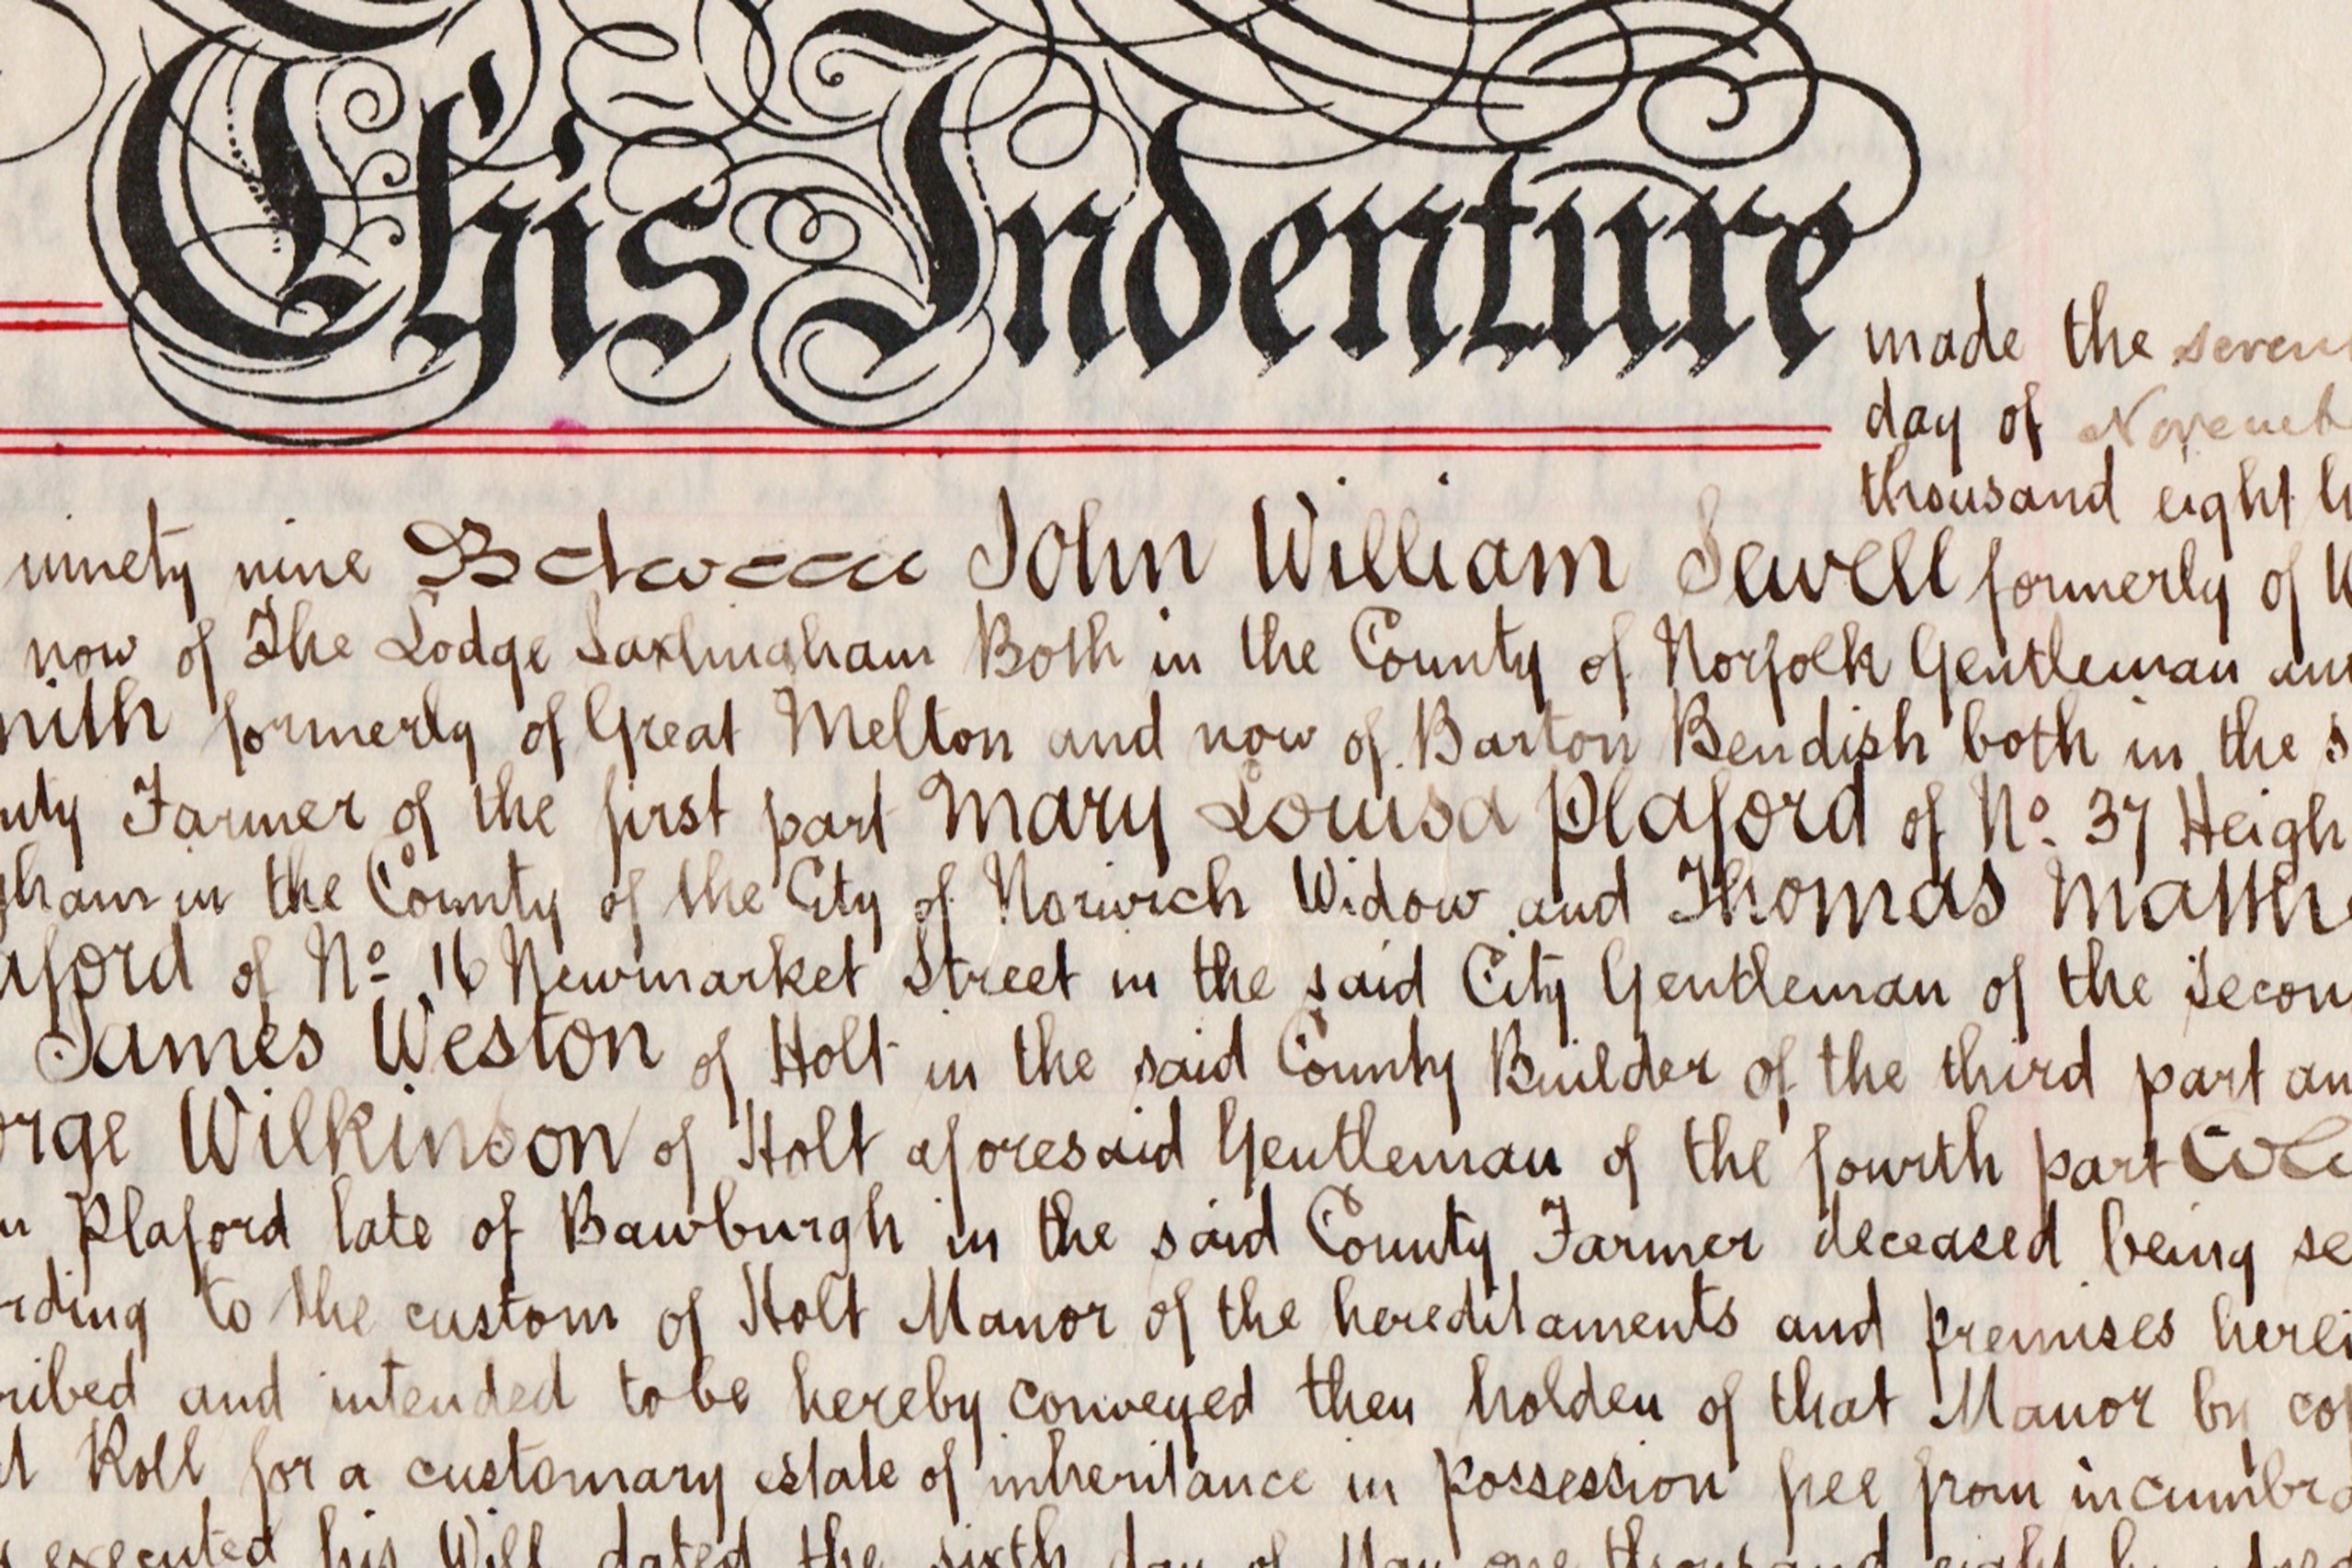 This Indenture
made the seven
day of Novemb
thousand eight h
ninety nine Between John William Sewell formerly of W
now of The Lodge Saxlingham Both in the County of Norfolk Gentleman an
mith formerly of Great Melton and now of Barton Bendish both in the s
unty Farmer of the first part Mary Louisa Plaford of No. 37 Heigh
gham in the County of the City of Norwich Widow and Thomas Matth
aford of No 16 Newmarket Street in the said City Gentleman of the Secon
James Weston of Holt in the said County Builder of the third part an
orge Wilkinson of Holt aforesaid Gentleman of the fourth part
Plaford late of Bawburgh in the said County Farmer deceased being se
rding to the custom of Holt Manor of the hereditaments and premises herei
ribed and intended to be hereby conveyed then holden of that Manor by cop
t Roll for a customary estate of inheritance in possession free from incumbra
executed his Will dated the sixth day of May one thousand eight hundre